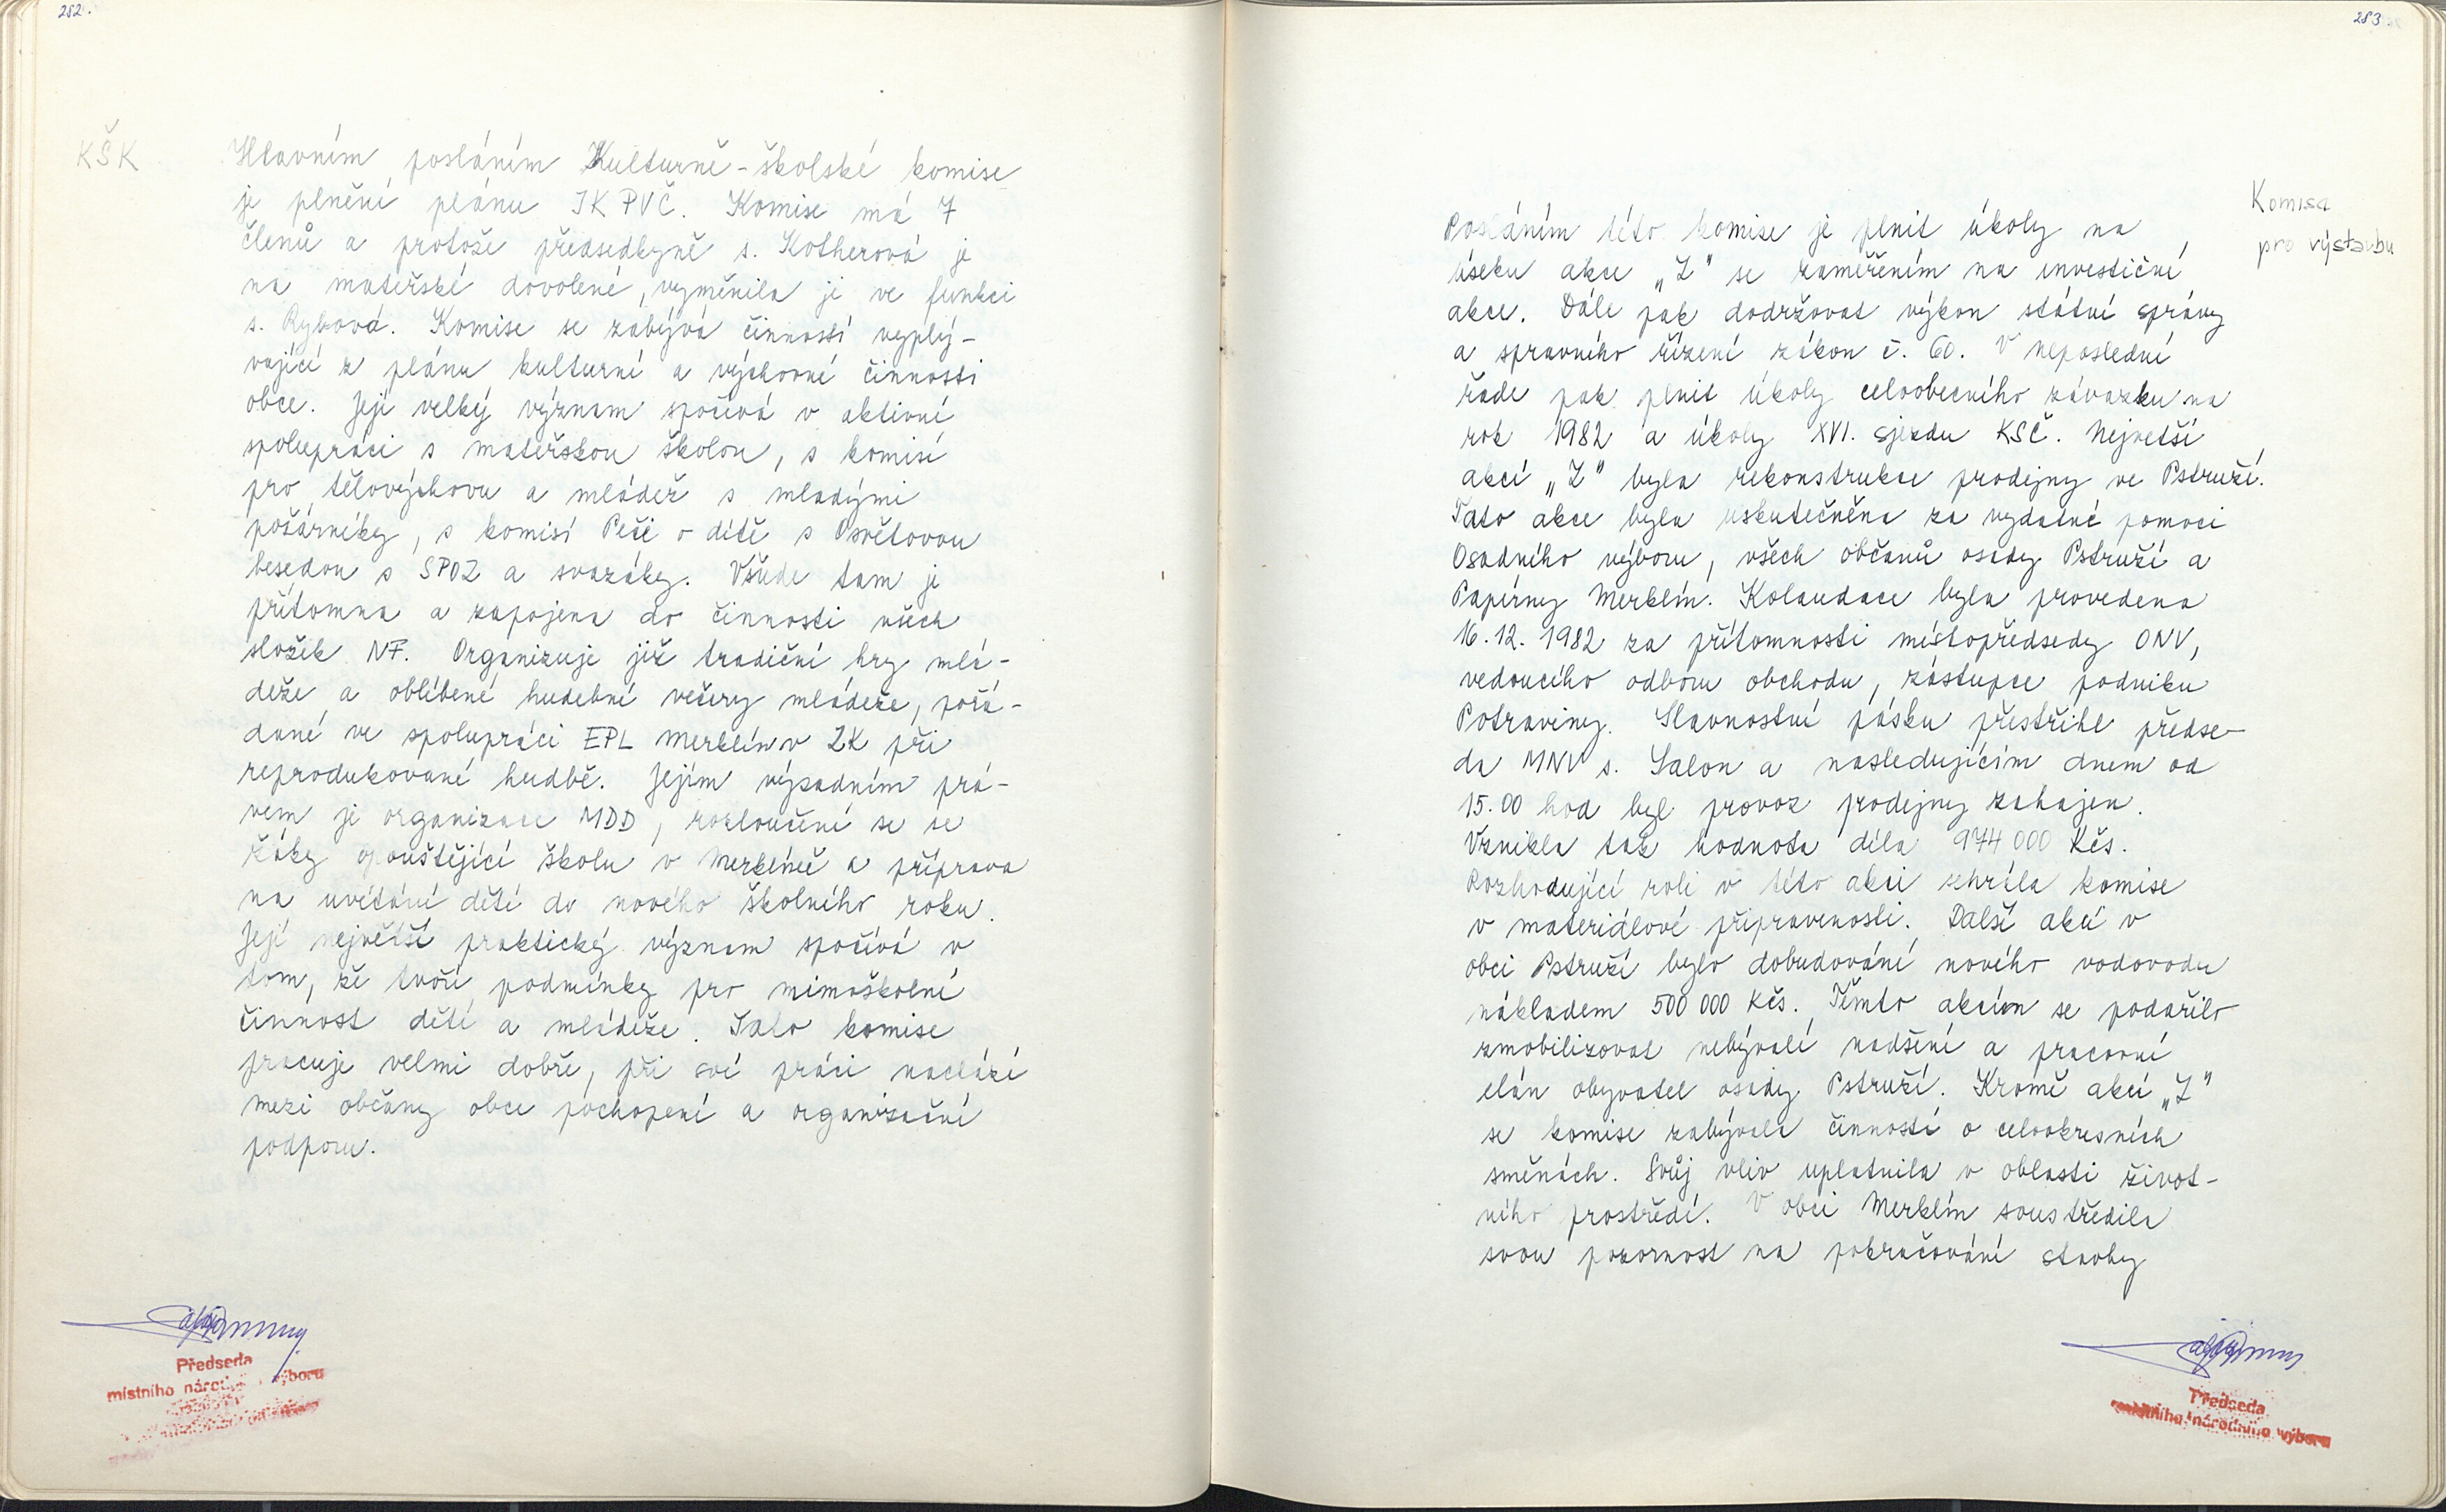 282.
KŠK
Hlavním posláním Kulturně-školské komise
je plnění plánu JKPVČ. Komise má 7
členů a protože předsedkyně s. Kotherová je
na mateřské dovolené, vyměnila je ve funkci
s. Rybová. Komise se zabývá činností vyplý-
vající z plánu kulturní a výchovné činnosti
obce. Její velký význam spočívá v aktivní
spolupráci s mateřskou školou, s komisí
pro tělovýchovu a mládež s mladými
požárníky, s komisí Péče o dítě s Osvětovou
besedou s SPOZ a svazáky. Všude tam je
přítomna a zapojena do činnosti všech
složek NF. Organizuje již tradiční hry mlá-
deže a oblíbené hudební večery mládeže, pořá-
dané ve spolupráci EPL Merklín v ZK při
reprodukované hudbě. Jejím výsadním prá-
vem je organizace MDD, rozloučení se se
žáky opouštějící školu v Merklíně a příprava
na uvítání dětí do nového školního roku.
Její největší praktický význam spočívá v
tom, že tvoří podmínky pro mimoškolní
činnost dětí a mládeže. Tato komise
pracuje velmi dobře, při své práci nachází
mezi občany obce pochopení a organizační
podporu.
Předseda
místního národního výboru
283
Komisa
pro výstavbu
Posláním této komise je plnit úkoly na
úseku akce „Z" se zaměřením na investiční
akce. Dále pak dodržovat výkon státní správy
a správního řízení zákon č. 60. V neposlední
řadě pak plnit úkoly celoobecního závazku na
rok 1982 a úkoly XVI. sjezdu KSČ. Největší
akcí „Z" byla rekonstrukce prodejny ve Pstruží.
Tato akce byla uskutečněna za vydatné pomoci
Osadního výboru, všech občanů osady Pstruží a
Papírny Merklín. Kolaudace byla provedena
16.12. 1982 za přítomnosti místopředsedy ONV,
vedoucího odboru obchodu, zástupce podniku
Potraviny. Slavnostní pásku přestřihl předse-
da MNV s. Salon a následujícím dnem od
15.00 hod byl provoz prodejny zahájen.
Vznikla tak hodnota díla 974 000 Kčs.
Rozhodující roli v této akci sehrála komise
v materiálové připravenosti. Další akcí v
obci Pstruží bylo dobudování nového vodovodu
nákladem 500 000 Kčs. Těmto akcím se podařilo
zmobilizovat nebývalé nadšení a pracovní
elán obyvatel osady Pstruží. Kromě akcí „Z"
se komise zabývala činností o celookresních
směnách. Svůj vliv uplatnila v oblasti život-
ního prostředí. V obci Merklín soustředila
svou pozornost na pokračování stavby
Předseda
místního národního výboru